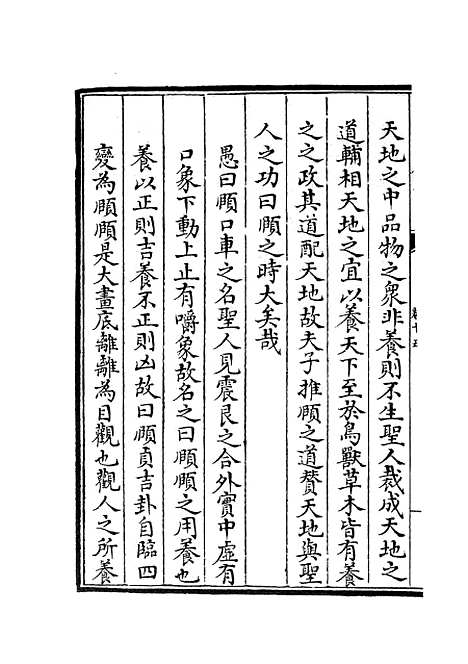 天地之中品物之衆非養則不生聖人裁成天地之
道輔相天地之宜以養天下至於鳥獸草木皆有養
之之政其道配天地故夫子推頤之道賛天地與聖
人之功曰頤之時大矣哉
愚曰頤口車之名聖人見震艮之合外實中虛有
口象下動上止有嚼象故名之曰頤頤之用養也
養以正則吉養不正則凶故曰頤貞吉卦自臨四
變為頤頤是大畫底離離為目觀也觀人之所養